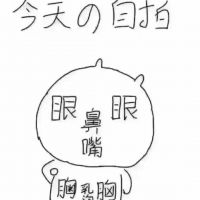 今天の自拍
眼 眼
鼻
嘴
胸 乳沟 胸